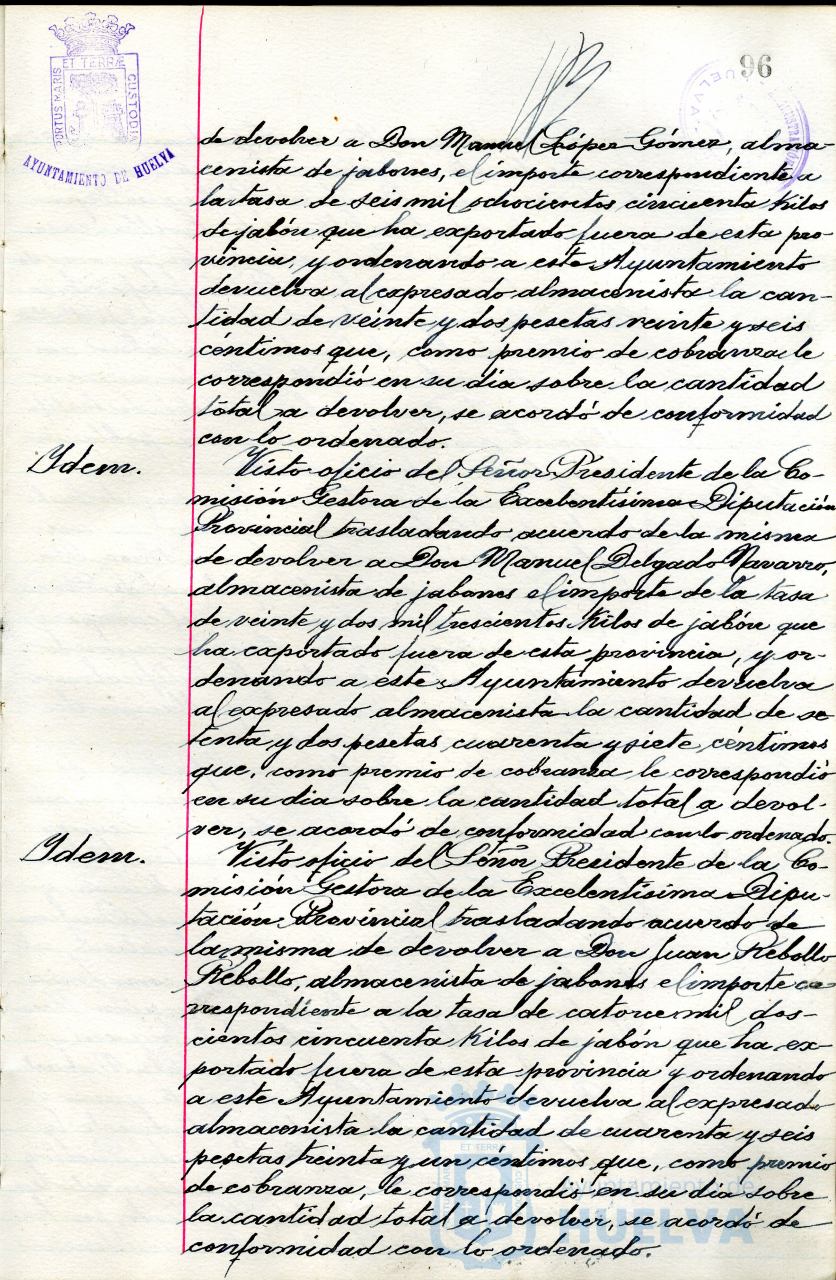 96
ET TERRÆ
PORTUS MARIS
CUSTODIA
AYUNTAMIENTO DE HUELVA
HUELVA
de devolver a Don Manuel López Gómez, alma-
cenista de jabones, el importe correspondiente a
la tasa de seis mil ochocientos cincuenta kilos
de jabón que ha exportado fuera de esta pro-
vincia, y ordenando a este Ayuntamiento
devuelva al expresado almacenista la can-
tidad de veinte y dos pesetas veinte y seis
céntimos que, como premio de cobranza le
correspondió en su dia sobre la cantidad
total a devolver, se acordó de conformidad
con lo ordenado.
Ydem.
Visto oficio del Señor Presidente de la Co-
misión Gestora de la Excelentísima Diputación
Provincial trasladando acuerdo de la misma
de devolver a Don Manuel Delgado Navarro,
almacenista de jabones el importe de la tasa
de veinte y dos mil trescientos kilos de jabón que
ha exportado fuera de esta provincia, y or-
denando a este Ayuntamiento devuelva
al expresado almacenista la cantidad de se
tenta y dos pesetas cuarenta y siete céntimos
que, como premio de cobranza le correspondió
en su dia sobre la cantidad total a devol-
ver, se acordó de conformidad con lo ordenado.
Ydem.
Visto oficio del Señor Presidente de la Co-
misión Gestora de la Excelentísima Dipu-
tación Provincial trasladando acuerdo de
la misma de devolver a Don Juan Rebollo
Rebollo, almacenista de jabones el importe co
rrespondiente a la tasa de catorce mil dos-
cientos cincuenta kilos de jabón que ha ex-
portado fuera de esta provincia y ordenando
a este Ayuntamiento devuelva al expresado
almacenista la cantidad de cuarenta y seis
pesetas treinta y un céntimos que, como premio
de cobranza, le correspondió en su dia sobre
la cantidad total a devolver, se acordó de
conformidad con lo ordenado.
Ayuntamiento de
HUELVA